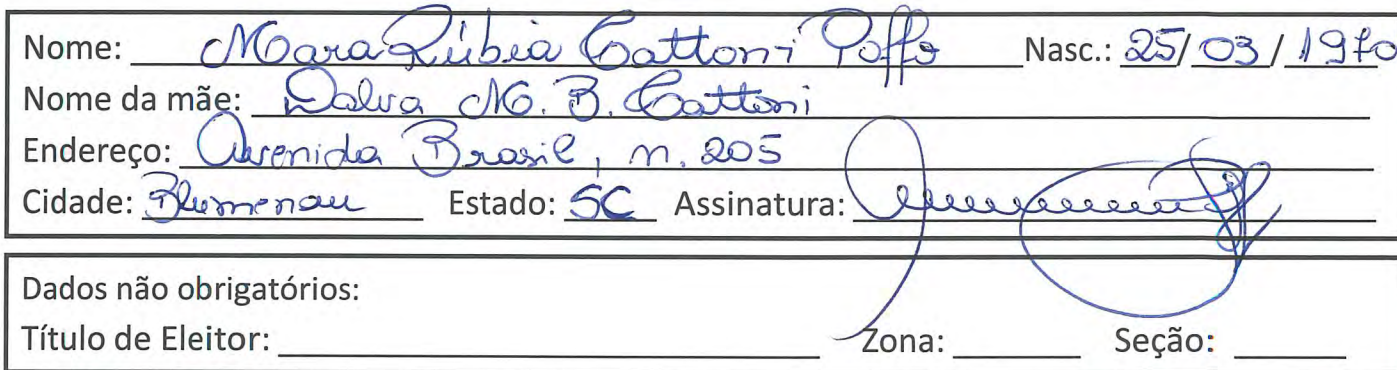 Nome: Mara Rúbia Cattoni Poffo Nasc.: 25/03/1970
Nome da mãe: Dalva M. B. Cattoni
Endereço: Avenida Brasil, n. 205
Cidade: Blumenau Estado: SC Assinatura:
Dados não obrigatórios:
Título de Eleitor: Zona: Seção: